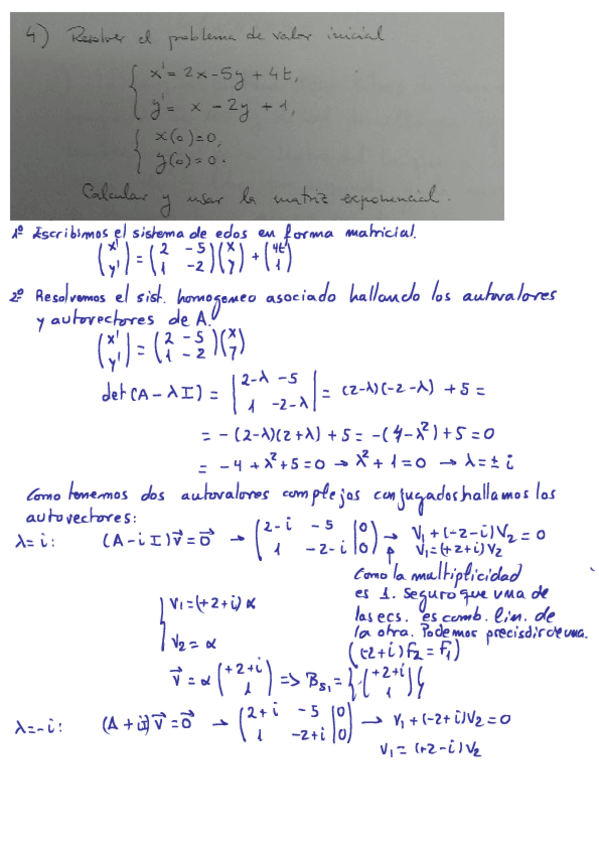 4) Resolver el problema de valor inicial
x' = 2x - 5y + 4t,
y' = x - 2y + 1,
x(0) = 0,
y(0) = 0.
Calcular y usar la matriz exponencial.
1º Escribimos el sistema de edos en forma matricial.
(x' y') = (2 -5 1 -2)(x y) + (4t 1)
2º Resolvemos el sist. homogeneo asociado hallando los autovalores
y autovectores de A.
(x' y') = (2 -5 1 -2)(x y)
det(A - λI) = |2-λ -5 1 -2-λ| = (2-λ)(-2-λ) + 5 =
= -(2-λ)(2+λ) + 5 = -(4-λ²) + 5 = 0
= -4 + λ² + 5 = 0 → λ² + 1 = 0 → λ = ± i
Como tenemos dos autovalores complejos conjugados hallamos los
autovectores:
λ = i: (A - iI)v⃗ = 0⃗ → (2-i -5 | 0 1 -2-i | 0) → V₁ + (-2-i)V₂ = 0
V₁ = (+2+i)V₂
Como la multiplicidad
es 1. Seguro que una de
las ecs. es comb. lin. de
la otra. Podemos precisdir de una.
((-2+i)F₂ = F₁)
V₁ = (+2+i)α
V₂ = α
v⃗ = α(+2+i 1) => B_{S₁} = {(+2+i 1)}
λ = -i: (A + iI)v⃗ = 0⃗ → (2+i -5 | 0 1 -2+i | 0) → V₁ + (-2+i)V₂ = 0
V₁ = (+2-i)V₂